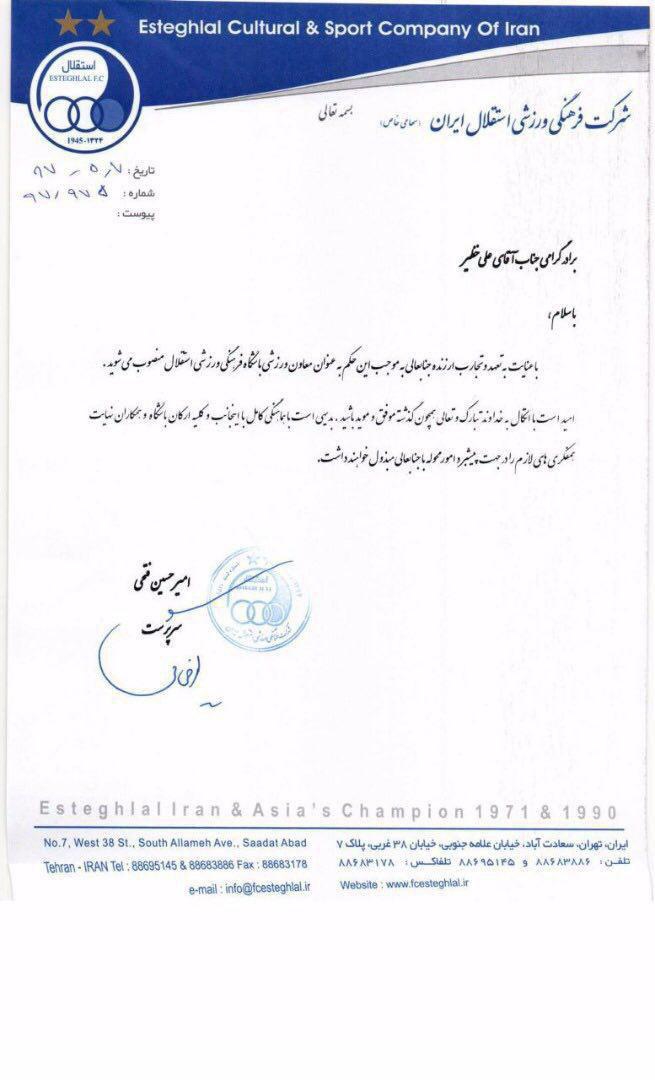 Esteghlal Cultural & Sport Company Of Iran
استقلال
ESTEGHLAL F.C
1945-۱۳۲۴
بسمه تعالی
شرکت فرهنگی ورزشی استقلال ایران (سهامی خاص)
تاریخ : ۹۷ - ۵,۷
شماره : ۹۷/۹۷۵
پیوست :
برادر گرامی جناب آقای علی خطیر
باسلام،
با عنایت به تعهد و تجارب ارزنده جنابعالی به موجب این حکم به عنوان معاون ورزشی باشگاه فرهنگی ورزشی استقلال منصوب می شوید.
امید است با اتکال به خداوند تبارک و تعالی همچون گذشته موفق و موید باشید. بدیهی است با هماهنگی کامل با اینجانب و کلیه ارکان باشگاه و همکاران نهایت
همفکری های لازم را در جهت پیشبرد امور محوله با جنابعالی مبذول خواهند داشت.
امیرحسین فتحی
سرپرست
Esteghlal Iran & Asia's Champion 1971 & 1990
No.7, West 38 St., South Allameh Ave., Saadat Abad
Tehran - IRAN Tel : 88695145 & 88683886 Fax : 88683178
e-mail : info@fcesteghlal.ir
ایران، تهران، سعادت آباد، خیابان علامه جنوبی، خیابان ۳۸ غربی، پلاک ۷
تلفن : ۸۸۶۸۳۸۸۶ و ۸۸۶۹۵۱۴۵ تلفاکس : ۸۸۶۸۳۱۷۸
Website : www.fcesteghlal.ir